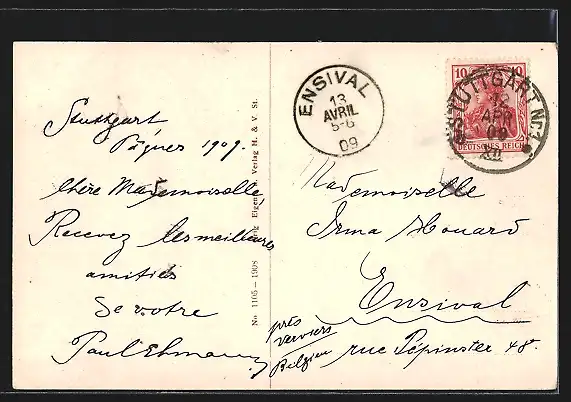 Stuttgart
Pâques 1909.
Chère Mademoiselle
Recevez les meilleures
amitiés
de votre
Paul Ehmann
No 1105 - 1908
Verlag H. & V. St.
ENSIVAL
13
AVRIL
5-6
09
10 10
DEUTSCHES REICH
STUTTGART No. 1
APR
09
Mademoiselle
Irma Houard
Ensival
près
Verviers
Belgien
rue Pépinster 48.